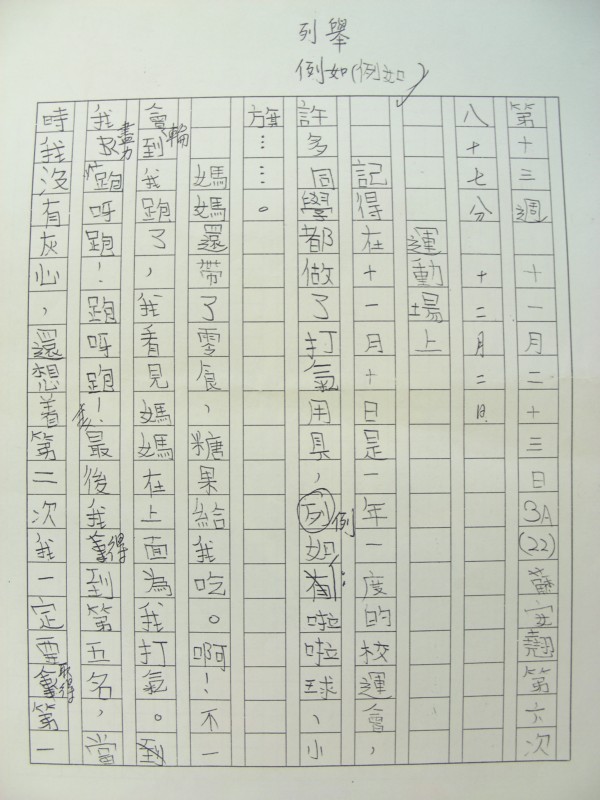 列舉
例如(例如)
第十三週 十一月二十三日 3A (22) 第六次
八十七分 十二月二日
運動場上
記得在十一月十日是一年一度的校運會，
許多同學都做了打氣用具，例如：啦啦球、小
旗……。
媽媽還帶了零食，糖果給我吃。啊！不一
會輪到我跑了，我看見媽媽在上面為我打氣。
我盡力跑呀跑！跑呀跑！最後我得到第五名，當
時我沒有灰心，還想着第二次我一定要取得第一